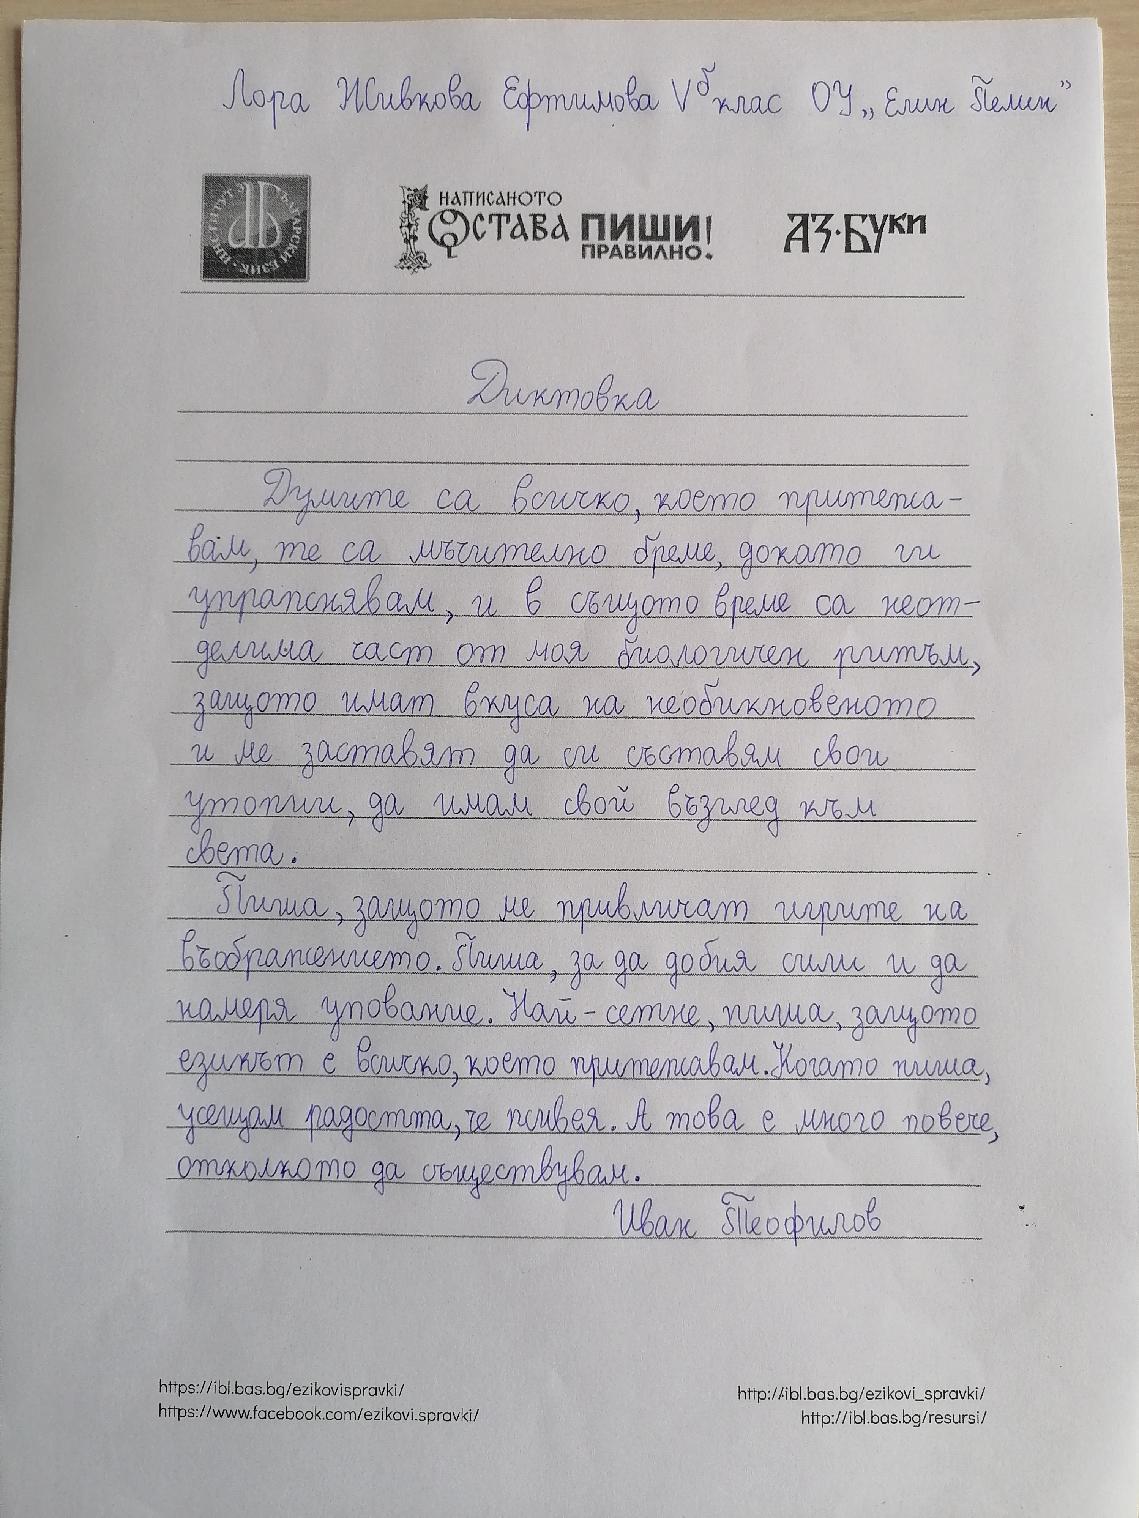 Лора Живкова Ефтимова V б клас ОУ „Елин Пелин”
ИНСТИТУТ ЗА БЪЛГАРСКИ ЕЗИК
НАПИСАНОТО
ОСТАВА ПИШИ!
ПРАВИЛНО.
АЗ·БУКИ
Диктовка
Думите са всичко, което притежа-
вам, те са мъчително бреме, докато ги
упражнявам, и в същото време са неот-
делима част от моя биологичен ритъм,
защото имат вкуса на необикновеното
и ме заставят да си съставям свои
утопии, да имам свой възглед към
света.
Пиша, защото ме привличат игрите на
въображението. Пиша, за да добия сили и да
намеря упование. Най-сетне, пиша, защото
езикът е всичко, което притежавам. Когато пиша,
усещам радостта, че живея. А това е много повече,
отколкото да съществувам.
Иван Теофилов
https://ibl.bas.bg/ezikovispravki/
http://ibl.bas.bg/ezikovi_spravki/
https://www.facebook.com/ezikovi.spravki/
http://ibl.bas.bg/resursi/